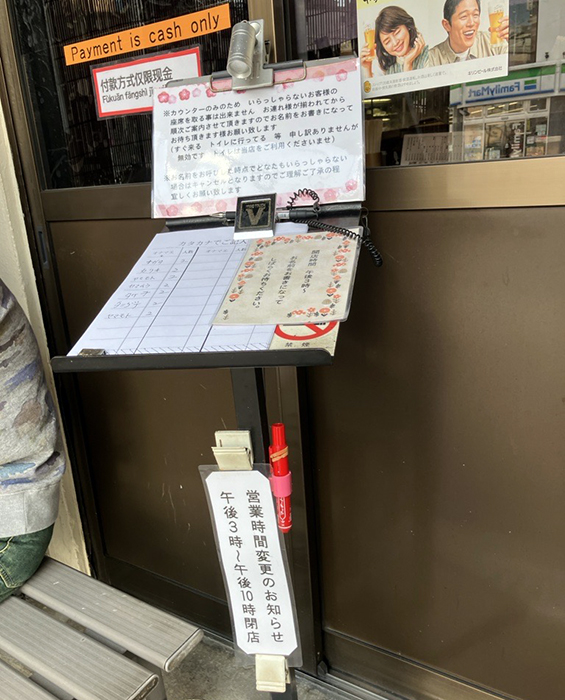 Payment is cash only
付款方式仅限現金
Fukuǎn fāngshì
FamilyMart
※カウンターのみのため いらっしゃらないお客様の
座席を取る事は出来ません お連れ様が揃われてから
順次ご案内させて頂きますのでお名前をお書きになって
お待ち頂きます様お願い致します
(すぐ来る トイレに行ってる 等 申し訳ありませんが
無効です トイレは当店をご利用くださいませ)
お名前をお呼びした時点でどなたもいらっしゃらない
場合はキャンセルとなりますのでご理解ご了承の程
宜しくお願い致します
V
カタカナでご
開店時間 午後3時〜
お名前をお書きになって
しばらくお待ちください。
禁煙
営業時間変更のお知らせ
午後3時〜午後10時閉店